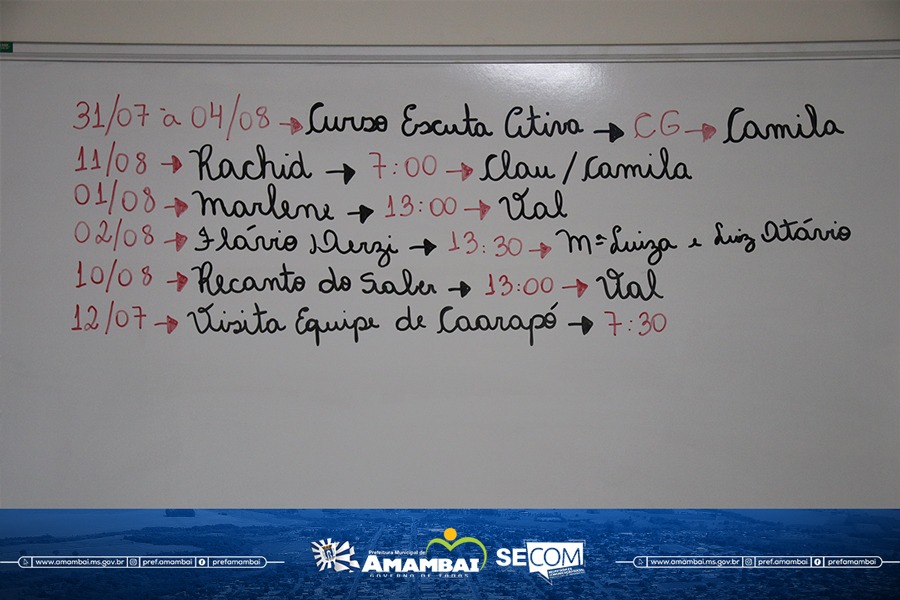 31/07 à 04/08 → Curso Escuta Ativa → CG → Camila
11/08 → Rachid → 7:00 → Clau / Camila
01/08 → Marlene → 13:00 → Val
02/08 → Flávio Derzi → 13:30 → Mª Luiza e Luiz Otávio
10/08 → Recanto do Saber → 13:00 → Val
12/07 → Visita Equipe de Caarapó → 7:30
www.amambai.ms.gov.br pref.amambai prefamambai
Prefeitura Municipal de
AMAMBAI
GOVERNO DE TODOS
SECOM
www.amambai.ms.gov.br pref.amambai prefamambai